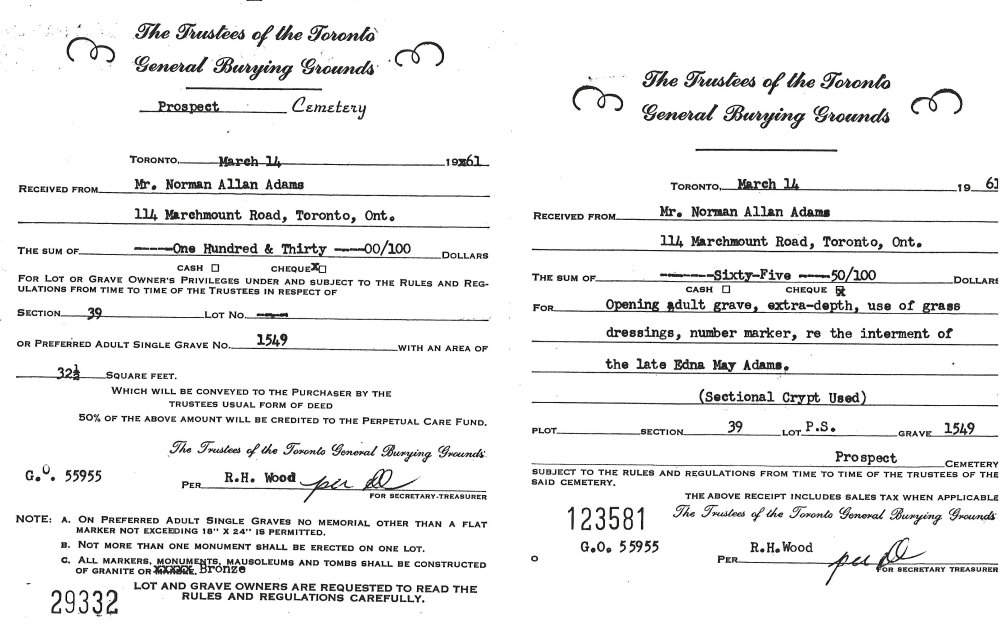 The Trustees of the Toronto
General Burying Grounds
Prospect Cemetery
TORONTO, March 14 1961
RECEIVED FROM Mr. Norman Allan Adams
114 Marchmount Road, Toronto, Ont.
THE SUM OF -----One Hundred & Thirty ----00/100 DOLLARS
CASH ☐ CHEQUE X☐
FOR LOT OR GRAVE OWNER'S PRIVILEGES UNDER AND SUBJECT TO THE RULES AND REG-
ULATIONS FROM TIME TO TIME OF THE TRUSTEES IN RESPECT OF
SECTION 39 LOT NO. ----
OR PREFERRED ADULT SINGLE GRAVE NO. 1549 WITH AN AREA OF
32½ SQUARE FEET.
WHICH WILL BE CONVEYED TO THE PURCHASER BY THE
TRUSTEES USUAL FORM OF DEED
50% OF THE ABOVE AMOUNT WILL BE CREDITED TO THE PERPETUAL CARE FUND.
The Trustees of the Toronto General Burying Grounds
G.O. 55955
PER R.H. Wood per
FOR SECRETARY-TREASURER
NOTE: A. ON PREFERRED ADULT SINGLE GRAVES NO MEMORIAL OTHER THAN A FLAT
MARKER NOT EXCEEDING 18" X 24" IS PERMITTED.
B. NOT MORE THAN ONE MONUMENT SHALL BE ERECTED ON ONE LOT.
C. ALL MARKERS, MONUMENTS, MAUSOLEUMS AND TOMBS SHALL BE CONSTRUCTED
OF GRANITE OR Bronze
LOT AND GRAVE OWNERS ARE REQUESTED TO READ THE
RULES AND REGULATIONS CAREFULLY.
29332
The Trustees of the Toronto
General Burying Grounds
TORONTO, March 14 19 61
RECEIVED FROM Mr. Norman Allan Adams
114 Marchmount Road, Toronto, Ont.
THE SUM OF -------Sixty-Five ----50/100 DOLLARS
CASH ☐ CHEQUE ☒
FOR Opening adult grave, extra-depth, use of grass
dressings, number marker, re the interment of
the late Edna May Adams.
(Sectional Crypt Used)
PLOT SECTION 39 LOT P.S. GRAVE 1549
Prospect CEMETERY
SUBJECT TO THE RULES AND REGULATIONS FROM TIME TO TIME OF THE TRUSTEES OF THE
SAID CEMETERY.
THE ABOVE RECEIPT INCLUDES SALES TAX WHEN APPLICABLE
123581 The Trustees of the Toronto General Burying Grounds
G.O. 55955
O PER R.H.Wood per
FOR SECRETARY TREASURER